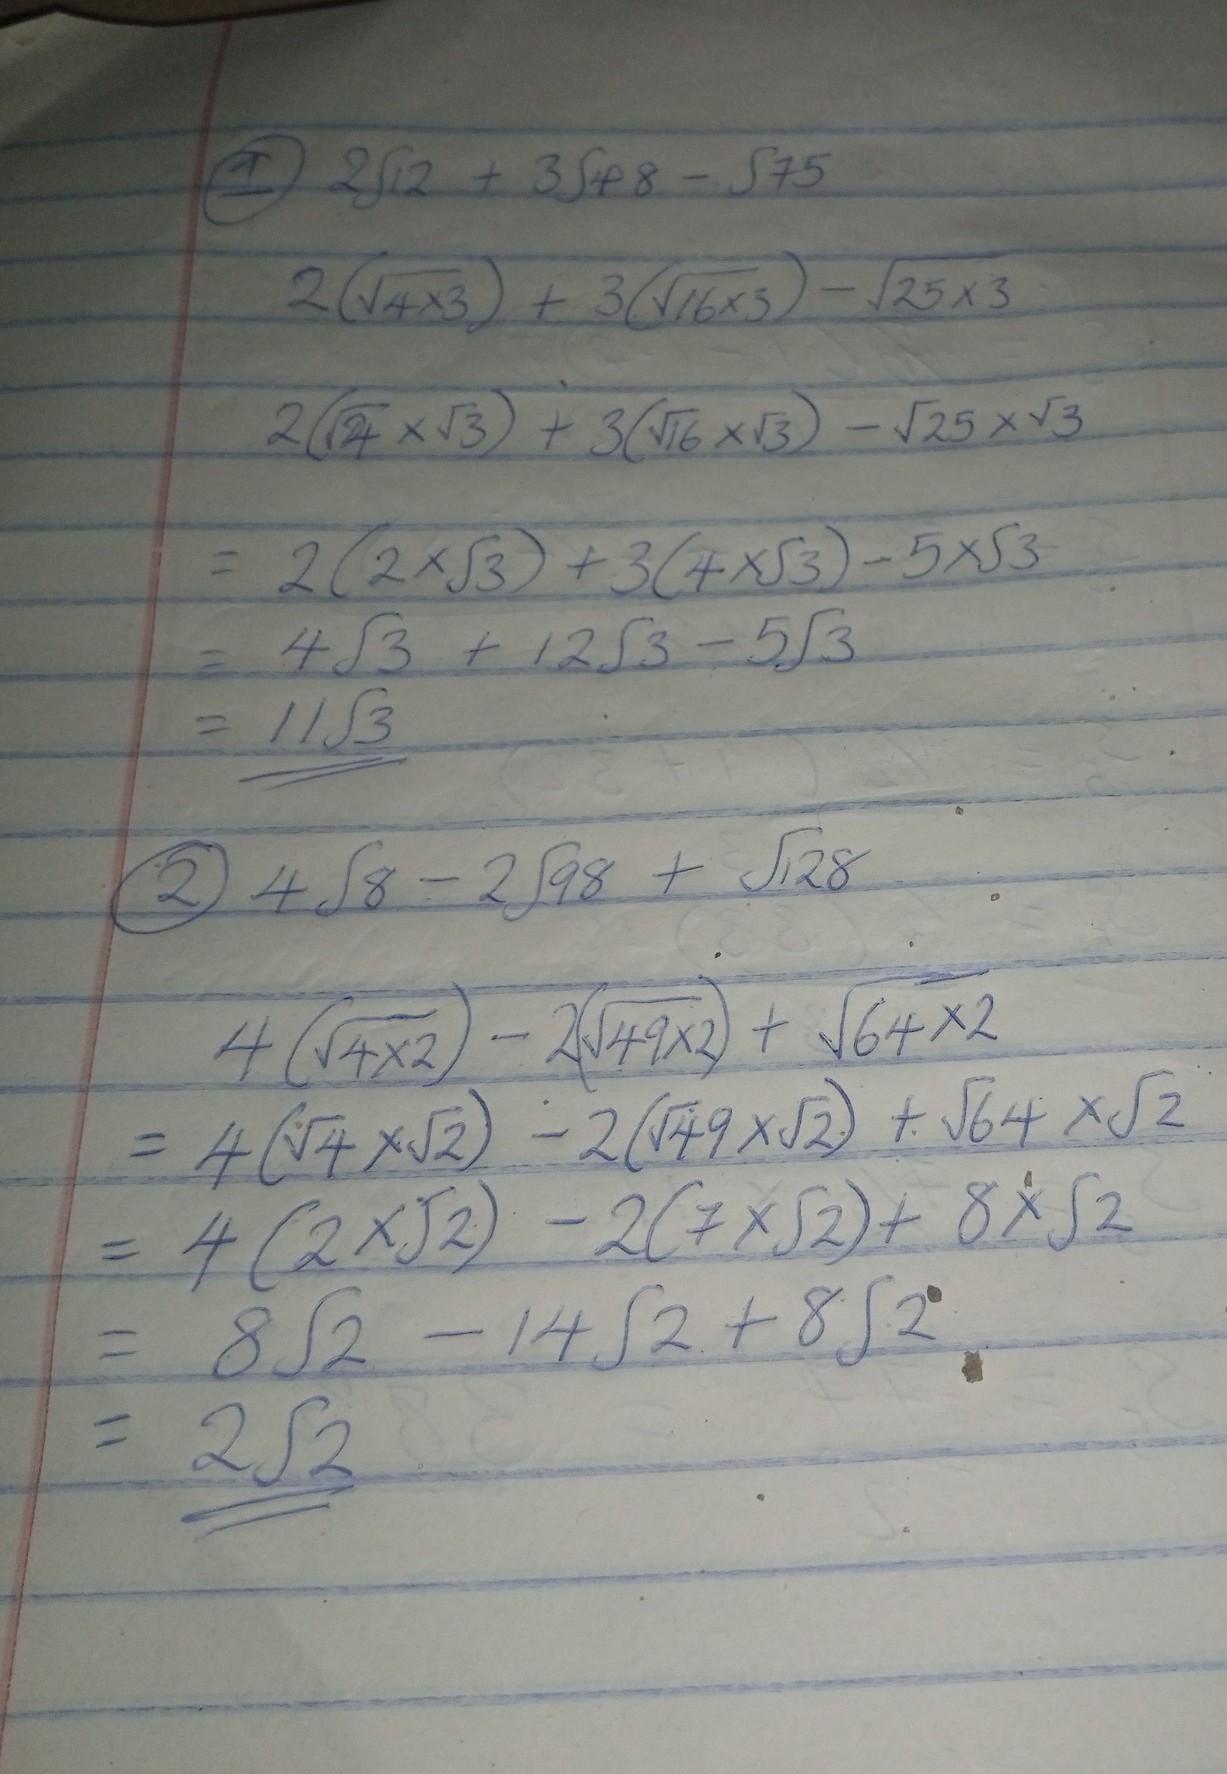 ① 2√12 + 3√48 - √75
2(√4×3) + 3(√16×3) - √25×3
2(√4 × √3) + 3(√16 × √3) - √25 × √3
= 2(2×√3) + 3(4×√3) - 5×√3
= 4√3 + 12√3 - 5√3
= 11√3
② 4√8 - 2√98 + √128
4(√4×2) - 2(√49×2) + √64×2
= 4(√4×√2) - 2(√49×√2) + √64 × √2
= 4(2×√2) - 2(7×√2) + 8×√2
= 8√2 - 14√2 + 8√2
= 2√2